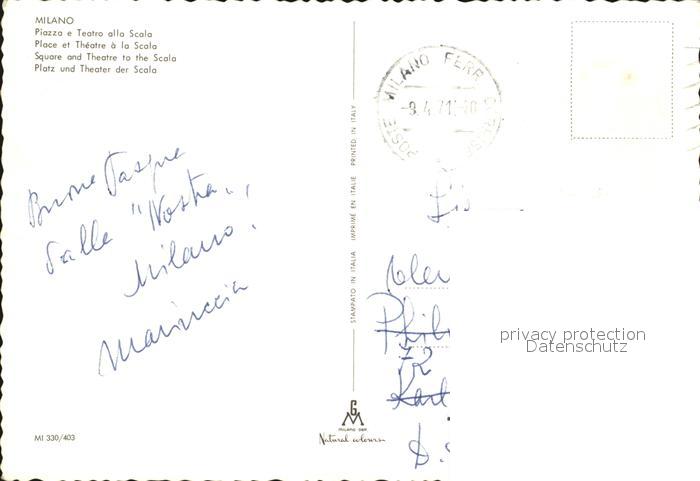 MILANO
Piazza e Teatro alla Scala
Place et Théatre à la Scala
Square and Theatre to the Scala
Platz und Theater der Scala
Buone Pasque
dalla "Nostra"
Milano!
Mariuccia
MI 330/403
STAMPATO IN ITALIA IMPRIMÉ EN ITALIE PRINTED IN ITALY
MILANO DEP.
Natural colours
POSTE MILANO FERR
72
D.
privacy protection
Datenschutz